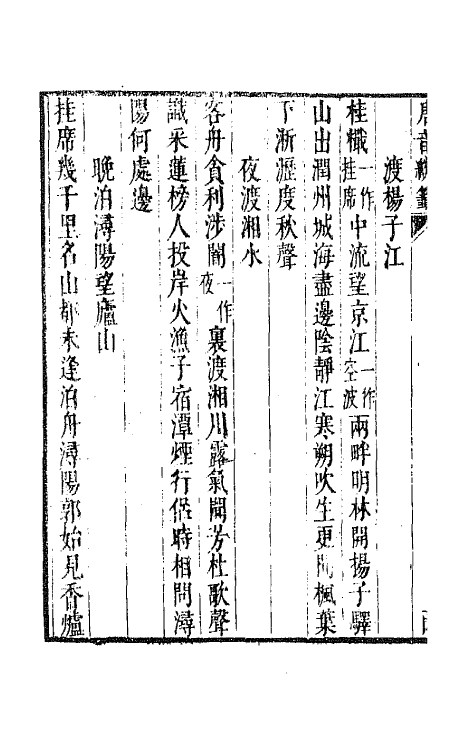 唐音統籤
渡楊子江
桂檝一作挂席中流望京江一作空波兩畔明林開揚子驛
山出潤州城海盡邊陰靜江寒朔吹生更聞楓葉
下淅瀝度秋聲
夜渡湘水
客舟貪利涉闇一作夜裏渡湘川露氣聞芳杜歌聲
識釆蓮榜人投岸火漁子宿潭煙行侶時相問潯
陽何處邊
晚泊潯陽望廬山
挂席幾千里名山都未逢泊舟潯陽郭始見香爐